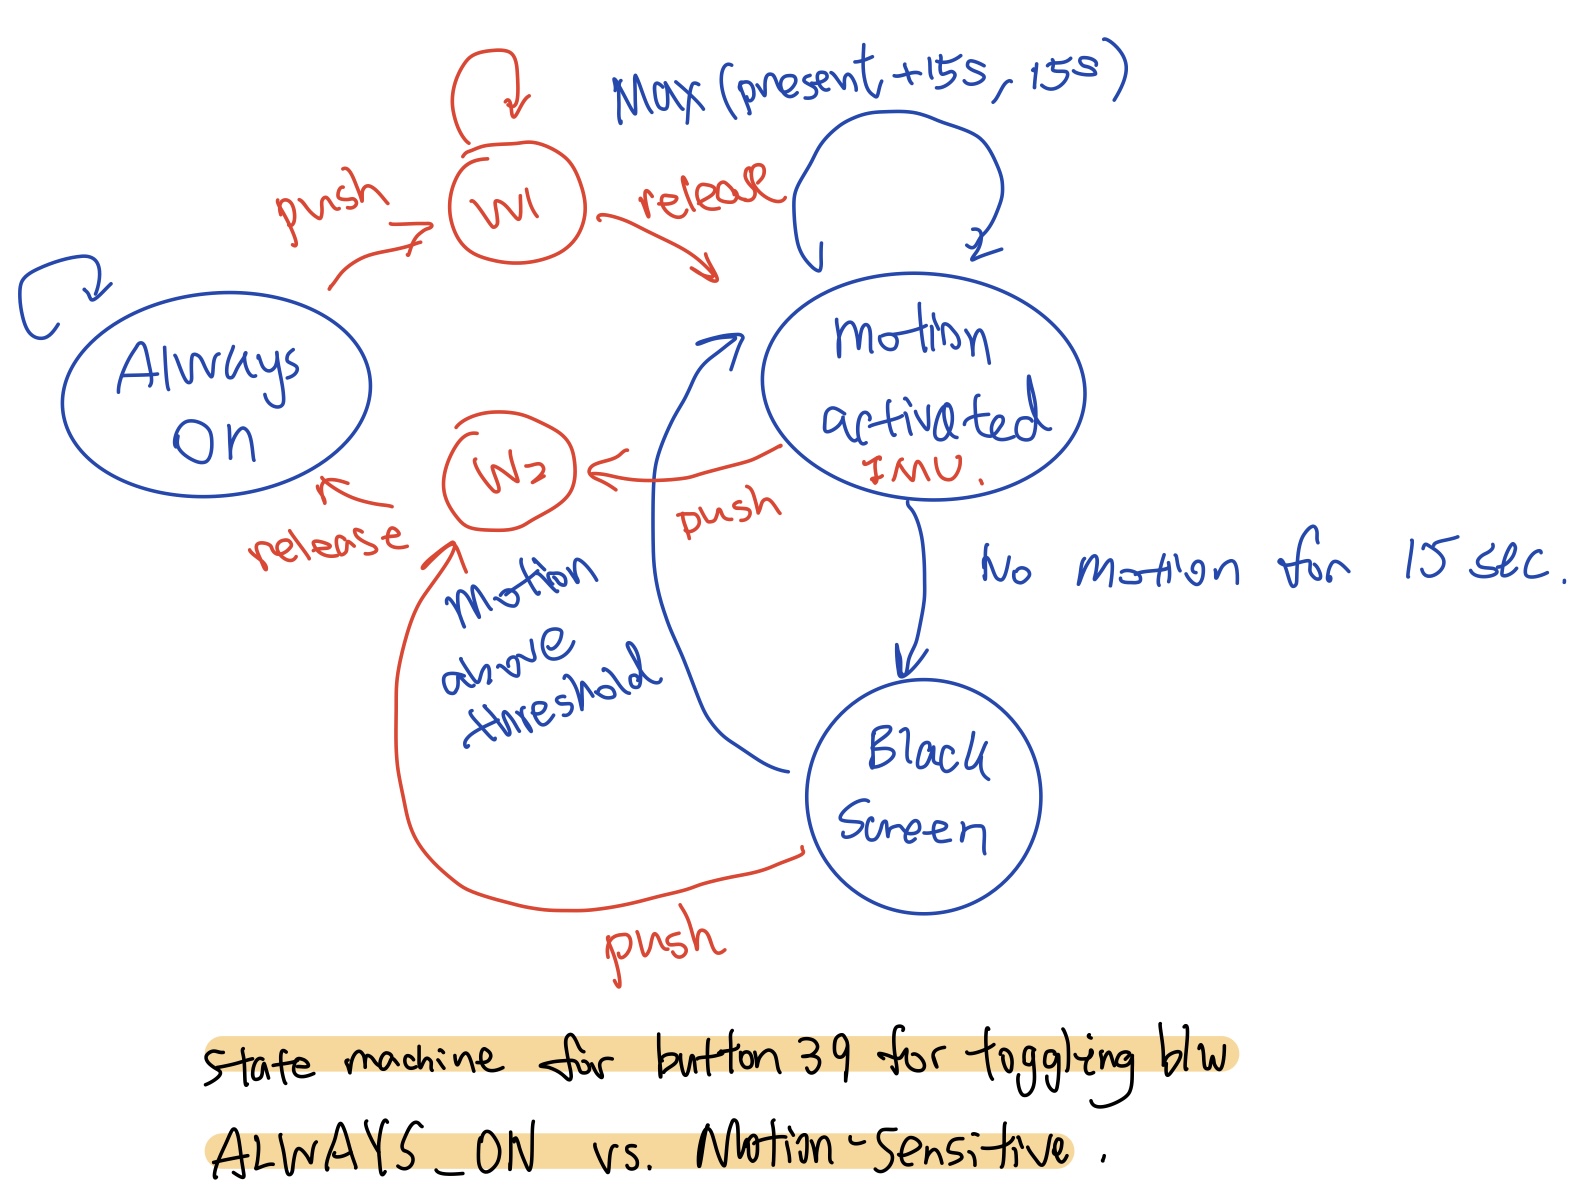 Max (present +15s, 15s)
push
W1
release
Always
On
motion
activated
IMU.
W2
push
release
Motion
above
threshold
No motion for 15 sec.
Black
Screen
push
state machine for button 39 for toggling b/w
ALWAYS_ON vs. Motion-Sensitive.